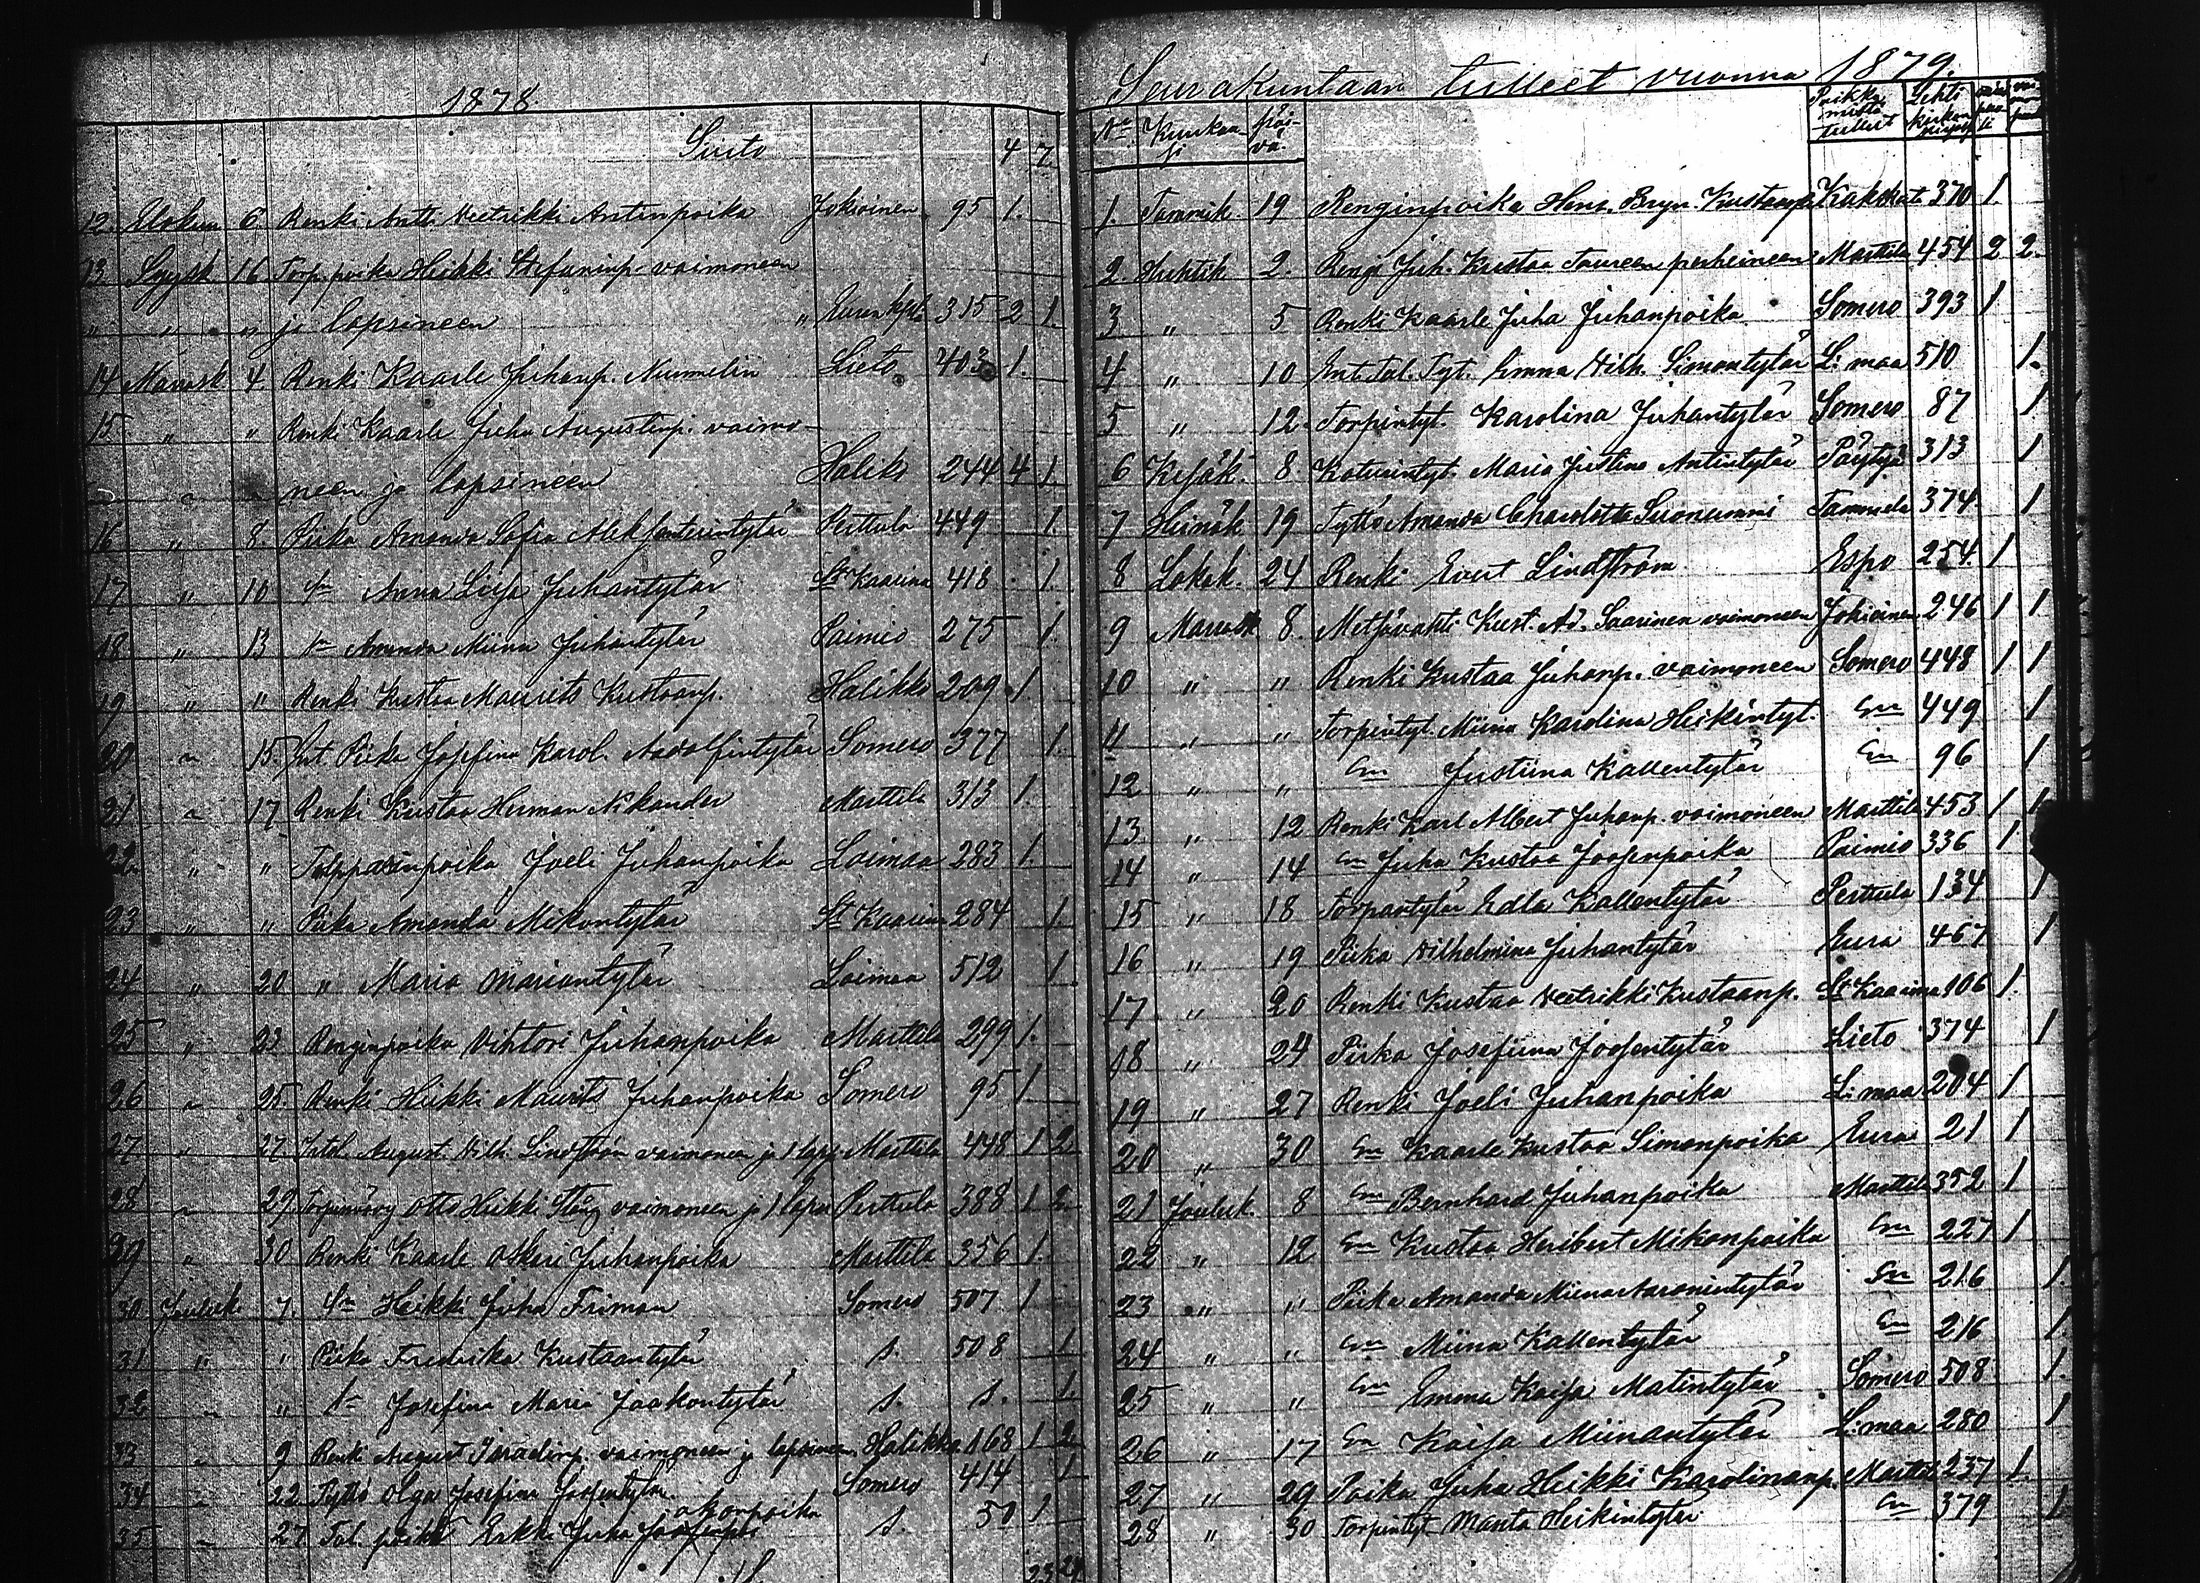 1878.
Siirto 4 7
12. Elokuu 6 Renki Antti Veetrikki Antinpoika Jokioinen 95 1.
13. Syysk 16 Torp. poika Heikki Stefaninp. vaimoneen
" " " ja lapsineen 315 2 1.
14 Marrask 4 Renki Kaarle Juhanp. Nummelin Lieto 403 1.
15 " " Renki Kaarle Juha Augustinp. vaimo-
neen ja lapsineen Haliko 244 4 1.
16 " 8 Piika Amanda Sofia Aleksanterintytär Perttula 449 1.
17 " 10 Anna Liisa Juhantytär St Kaarina 418 1.
18 " 13 Amanda Miina Juhantytär Paimio 275 1.
19 " " Renki Kustaa Maurits Kustaanp. Halikko 209 1.
20 " 15. Int. Piika Josefina Karol. Aadolfintytär Somero 377 1.
21 " 17 Renki Kustaa Herman Nikander Marttila 313 1.
22 " " poika Joeli Juhanpoika Loimaa 283 1.
23 " " Piika Amanda Mikontytär St Kaarina 284 1.
24 " 20 " Maria Mariantytär Loimaa 512 1.
25 " 23 Renginpoika Vihtori Juhanpoika Marttila 299 1.
26 " 25 Renki Heikki Maurits Juhanpoika Somero 95 1
27 " 27 August Vilh. Lindström vaimoneen ja 1 laps Marttila 448 1 2
28 " 29 Otto Heikki Stång vaimoneen ja 1 lapsi Perttula 388 1 2
29 " 30 Renki Kaarle Oskari Juhanpoika Marttila 356 1.
30 Jouluk 7 Heikki Juha Friman Somero 507 1
31 " " Piika Fredrika Kustaantytär s. 508 1.
32 " " Josefina Maria Jaakontytär s. s. 1.
33 " 9 Renki August vaimoneen ja lapsineen Halikko 168 1 2
34 " 22 Tyttö Olga Josefina Joosentytär Somero 414 1
35 " 27 Tal. poika Erkki Juha s. 50 1
23 24
Seurakuntaan tulleet vuonna 1879.
No Kuukausi Päivä. Paikka mistä tulleet Lehti kirkonkirja
1. Tammik. 19 Renginpoika Kustaanp. 370 1.
2. Huhtik 2. Renki Juh. Kustaa perheineen Marttila 454 2 2.
3 " 5 Renki Kaarle Juha Juhanpoika Somero 393 1
4 " 10 Int. Tal. Tyt. Emma Vilh. Simontytär L:maa 510 1.
5 " 12. Torpintyt. Karolina Juhantytär Somero 87 1
6 Kesäk. 8. Maria Justina Antintytär Pöytyä 313 1
7 Heinäk 19 Tyttö Amanda Charlotta Suonummi Tammela 374. 1
8 Lokak. 24 Renki Evert Lindström Espo 254. 1
9 Marrask 8. Metsävahti Kust. Ad. Saarinen vaimoneen Jokioinen 246 1 1
10 " " Renki Kustaa Juhanp. vaimoneen Somero 448 1 1
11 " " Torpintyt. Miina Karolina Heikintyt. Sm 449 1
12 " " Sm Justiina Kallentytär Sm 96 1
13 " 12 Renki Karl Albert Juhanp. vaimoneen Marttila 453 1 1
14 " 14 Sm Juha Kustaa Joosenpoika Paimio 336 1
15 " 18 Torpantytär Edla Kallentytär Perttula 134 1
16 " 19 Piika Vilhelmina Juhantytär Eura 467 1
17 " 20 Renki Kustaa Veetrikki Kustaanp. St Kaarina 106 1.
18 " 24 Piika Josefiina Joosentytär Lieto 374 1
19 " 27 Renki Joeli Juhanpoika L:maa 204 1
20 " 30 Sm Kaarle Kustaa Simonpoika Eura 21 1
21 Jouluk. 8 Sm Bernhard Juhanpoika Marttila 352 1
22 " 12 Sm Kustaa Heribert Mikonpoika Sm 227 1
23 " " Piika Amanda Miina Aaronintytär Sm 216 1.
24 " " Sm Miina Kallentytär Sm 216 1.
25 " " Sm Emma Kaisa Matintytär Somero 508 1.
26 " 17 Sm Kaisa Miinantytär L:maa 280 1
27 " 29 Poika Juha Heikki Karolinanp. Marttila 237 1.
28 " 30 Torpintyt. Manta Heikintytär Sm 379 1.